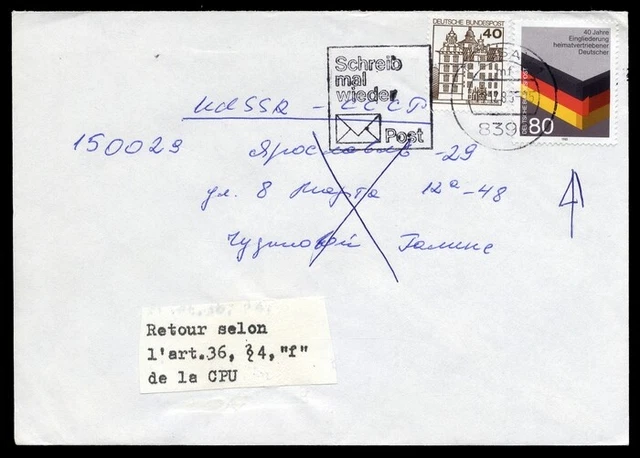 DEUTSCHE BUNDESPOST
40
40 Jahre
Eingliederung
heimatvertriebener
Deutscher
DEUTSCHE BUNDESPOST
80
Schreib
mal
wieder
Post
839
UdSSR - СССР
150029 Ярославль - 29
ул. 8 Марта 12а - 48
Чудиновой Галине
Retour selon
l'art.36, §4, "f"
de la CPU